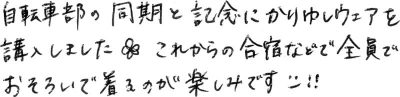 自転車部の同期と記念にかりゆしウェアを
購入しました🌺 これからの合宿などで全員で
おそろいで着るのが楽しみです ニ!!